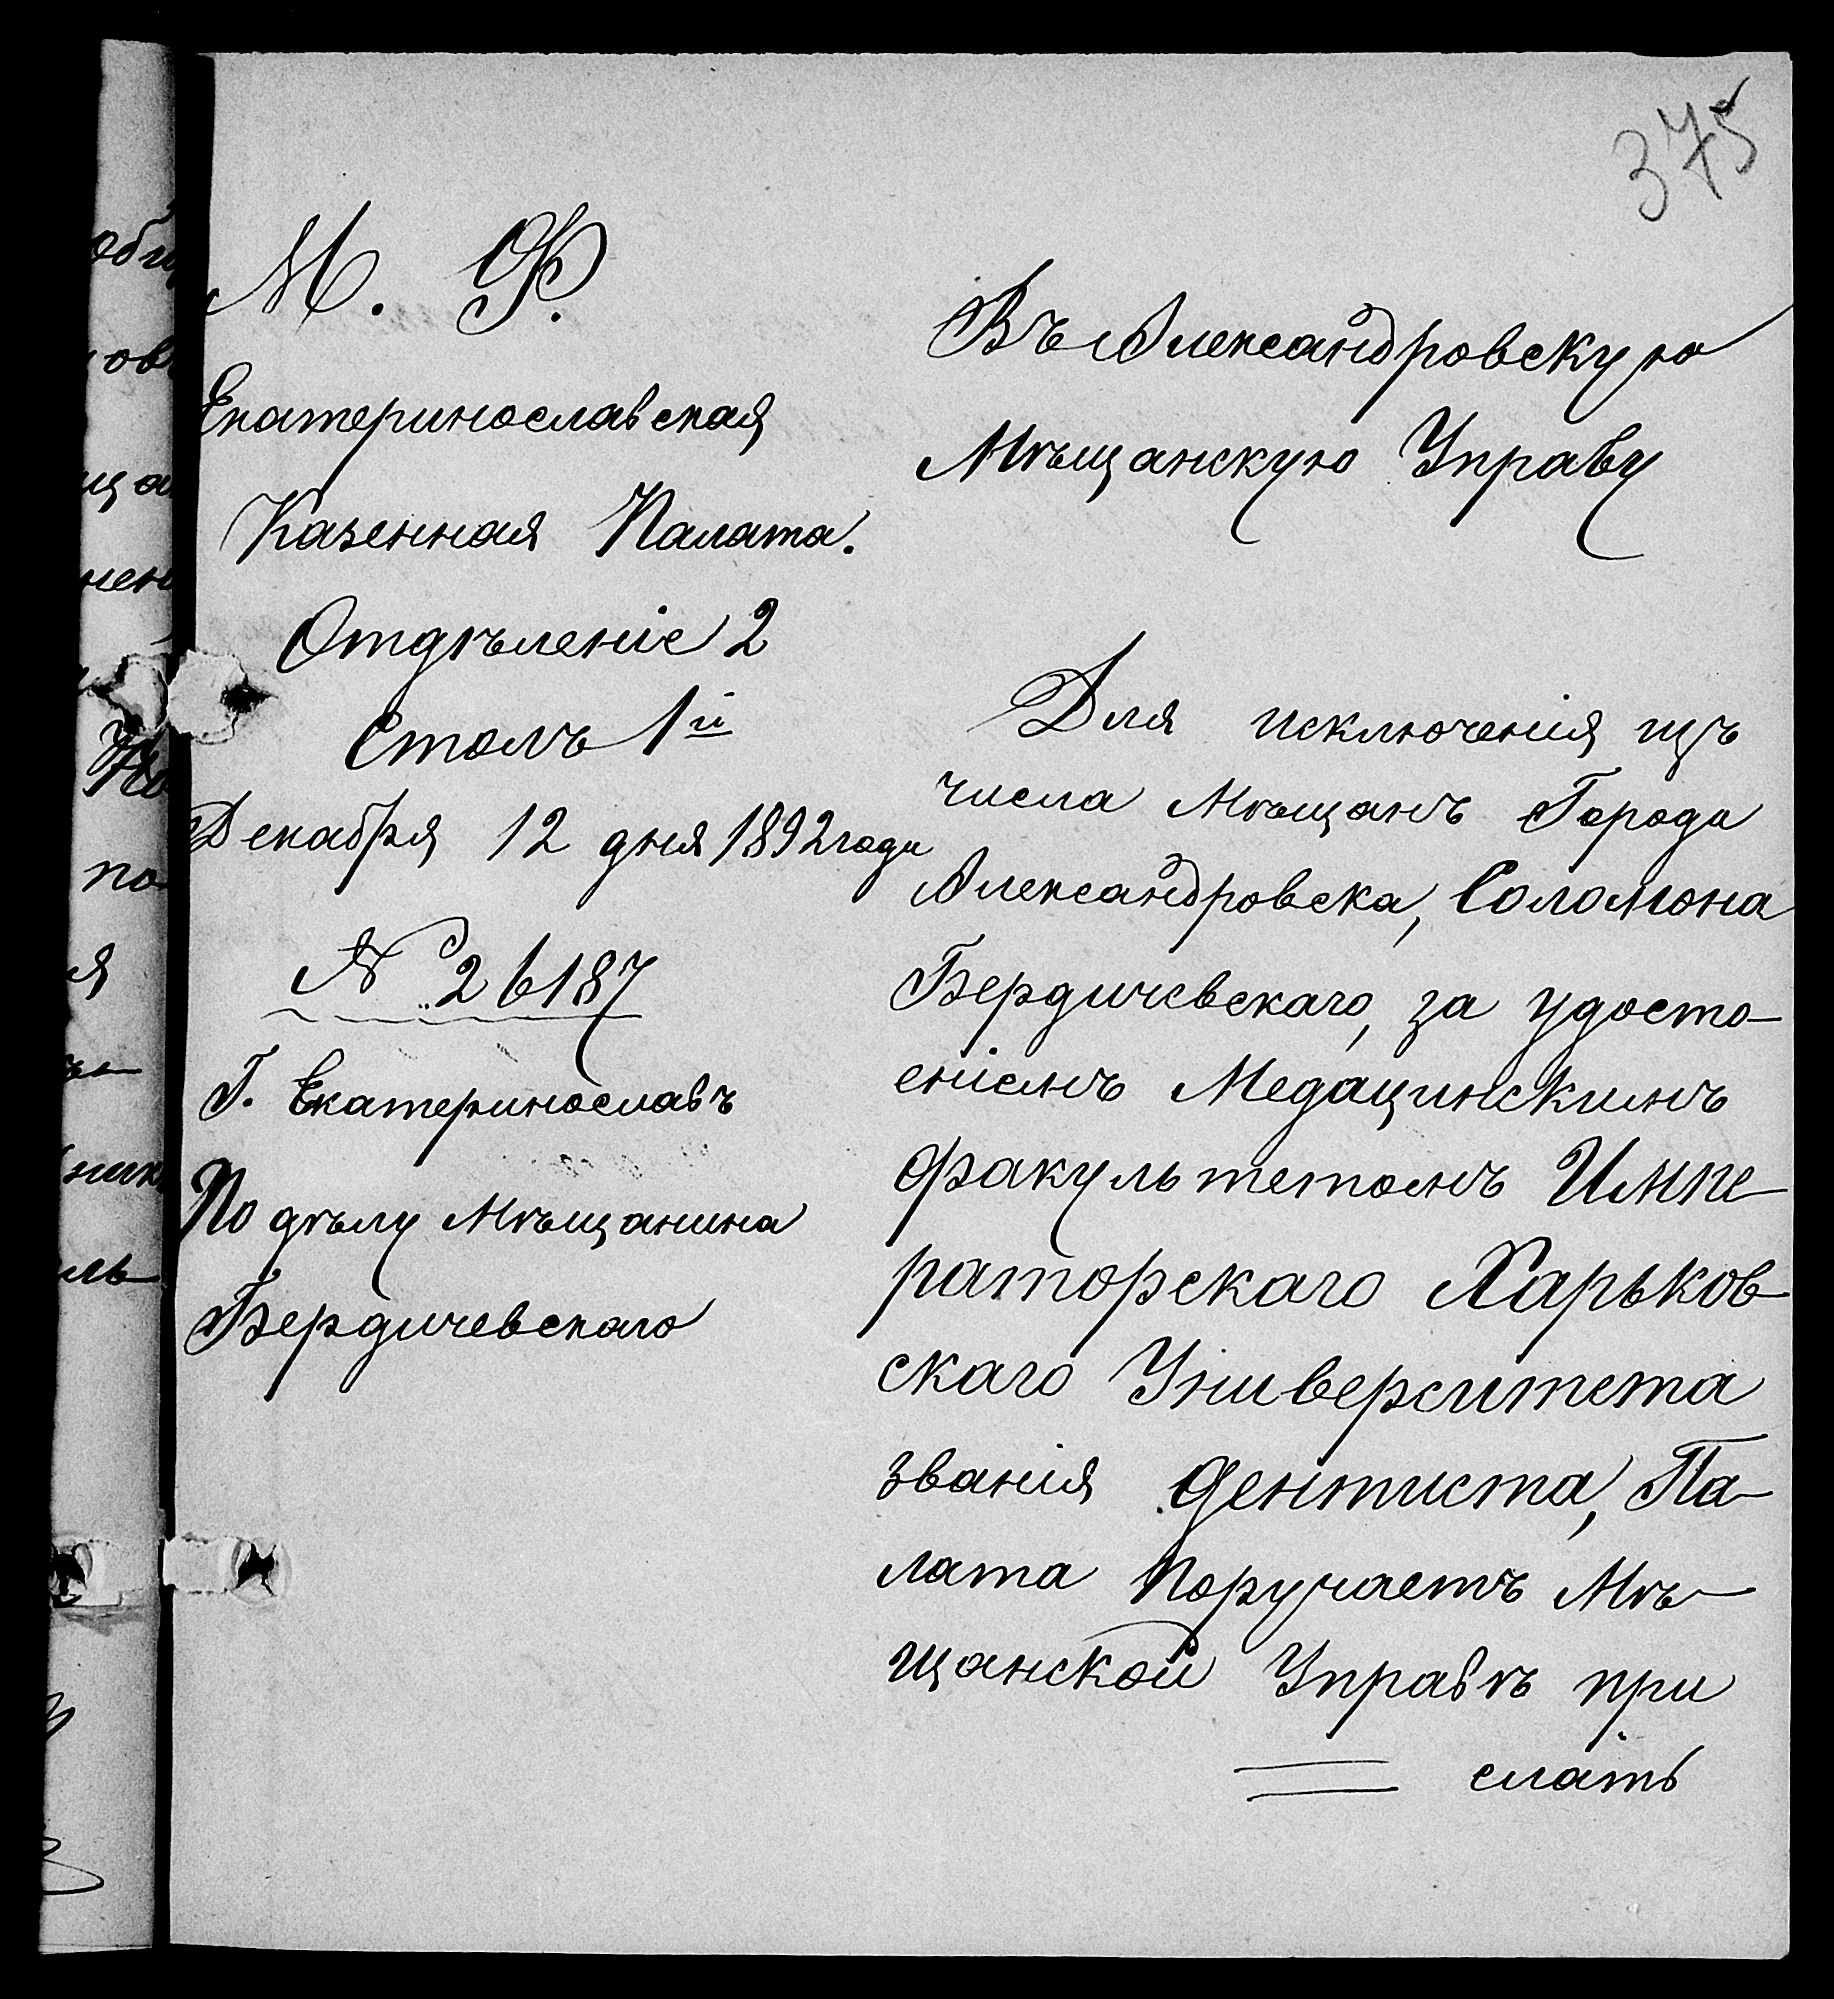 375
М. Ф.
Екатеринославская
Казенная Палата.
Отдѣленіе 2
Столъ 1й
Декабря 12 дня 1892 года
№ 26187
Г. Екатеринославъ
По дѣлу Мѣщанина
Бердичевскаго
Въ Александровскую
Мѣщанскую Управу
Для исключенія изъ
числа Мѣщанъ Города
Александровска, Соломона
Бердичевскаго, за удосто-
еніемъ Медацинскимъ
факультетомъ Импе-
раторскаго Харьков-
скаго Университета
званія дентиста, Па-
лата поручаетъ Мѣ-
щанской Управѣ при
слать